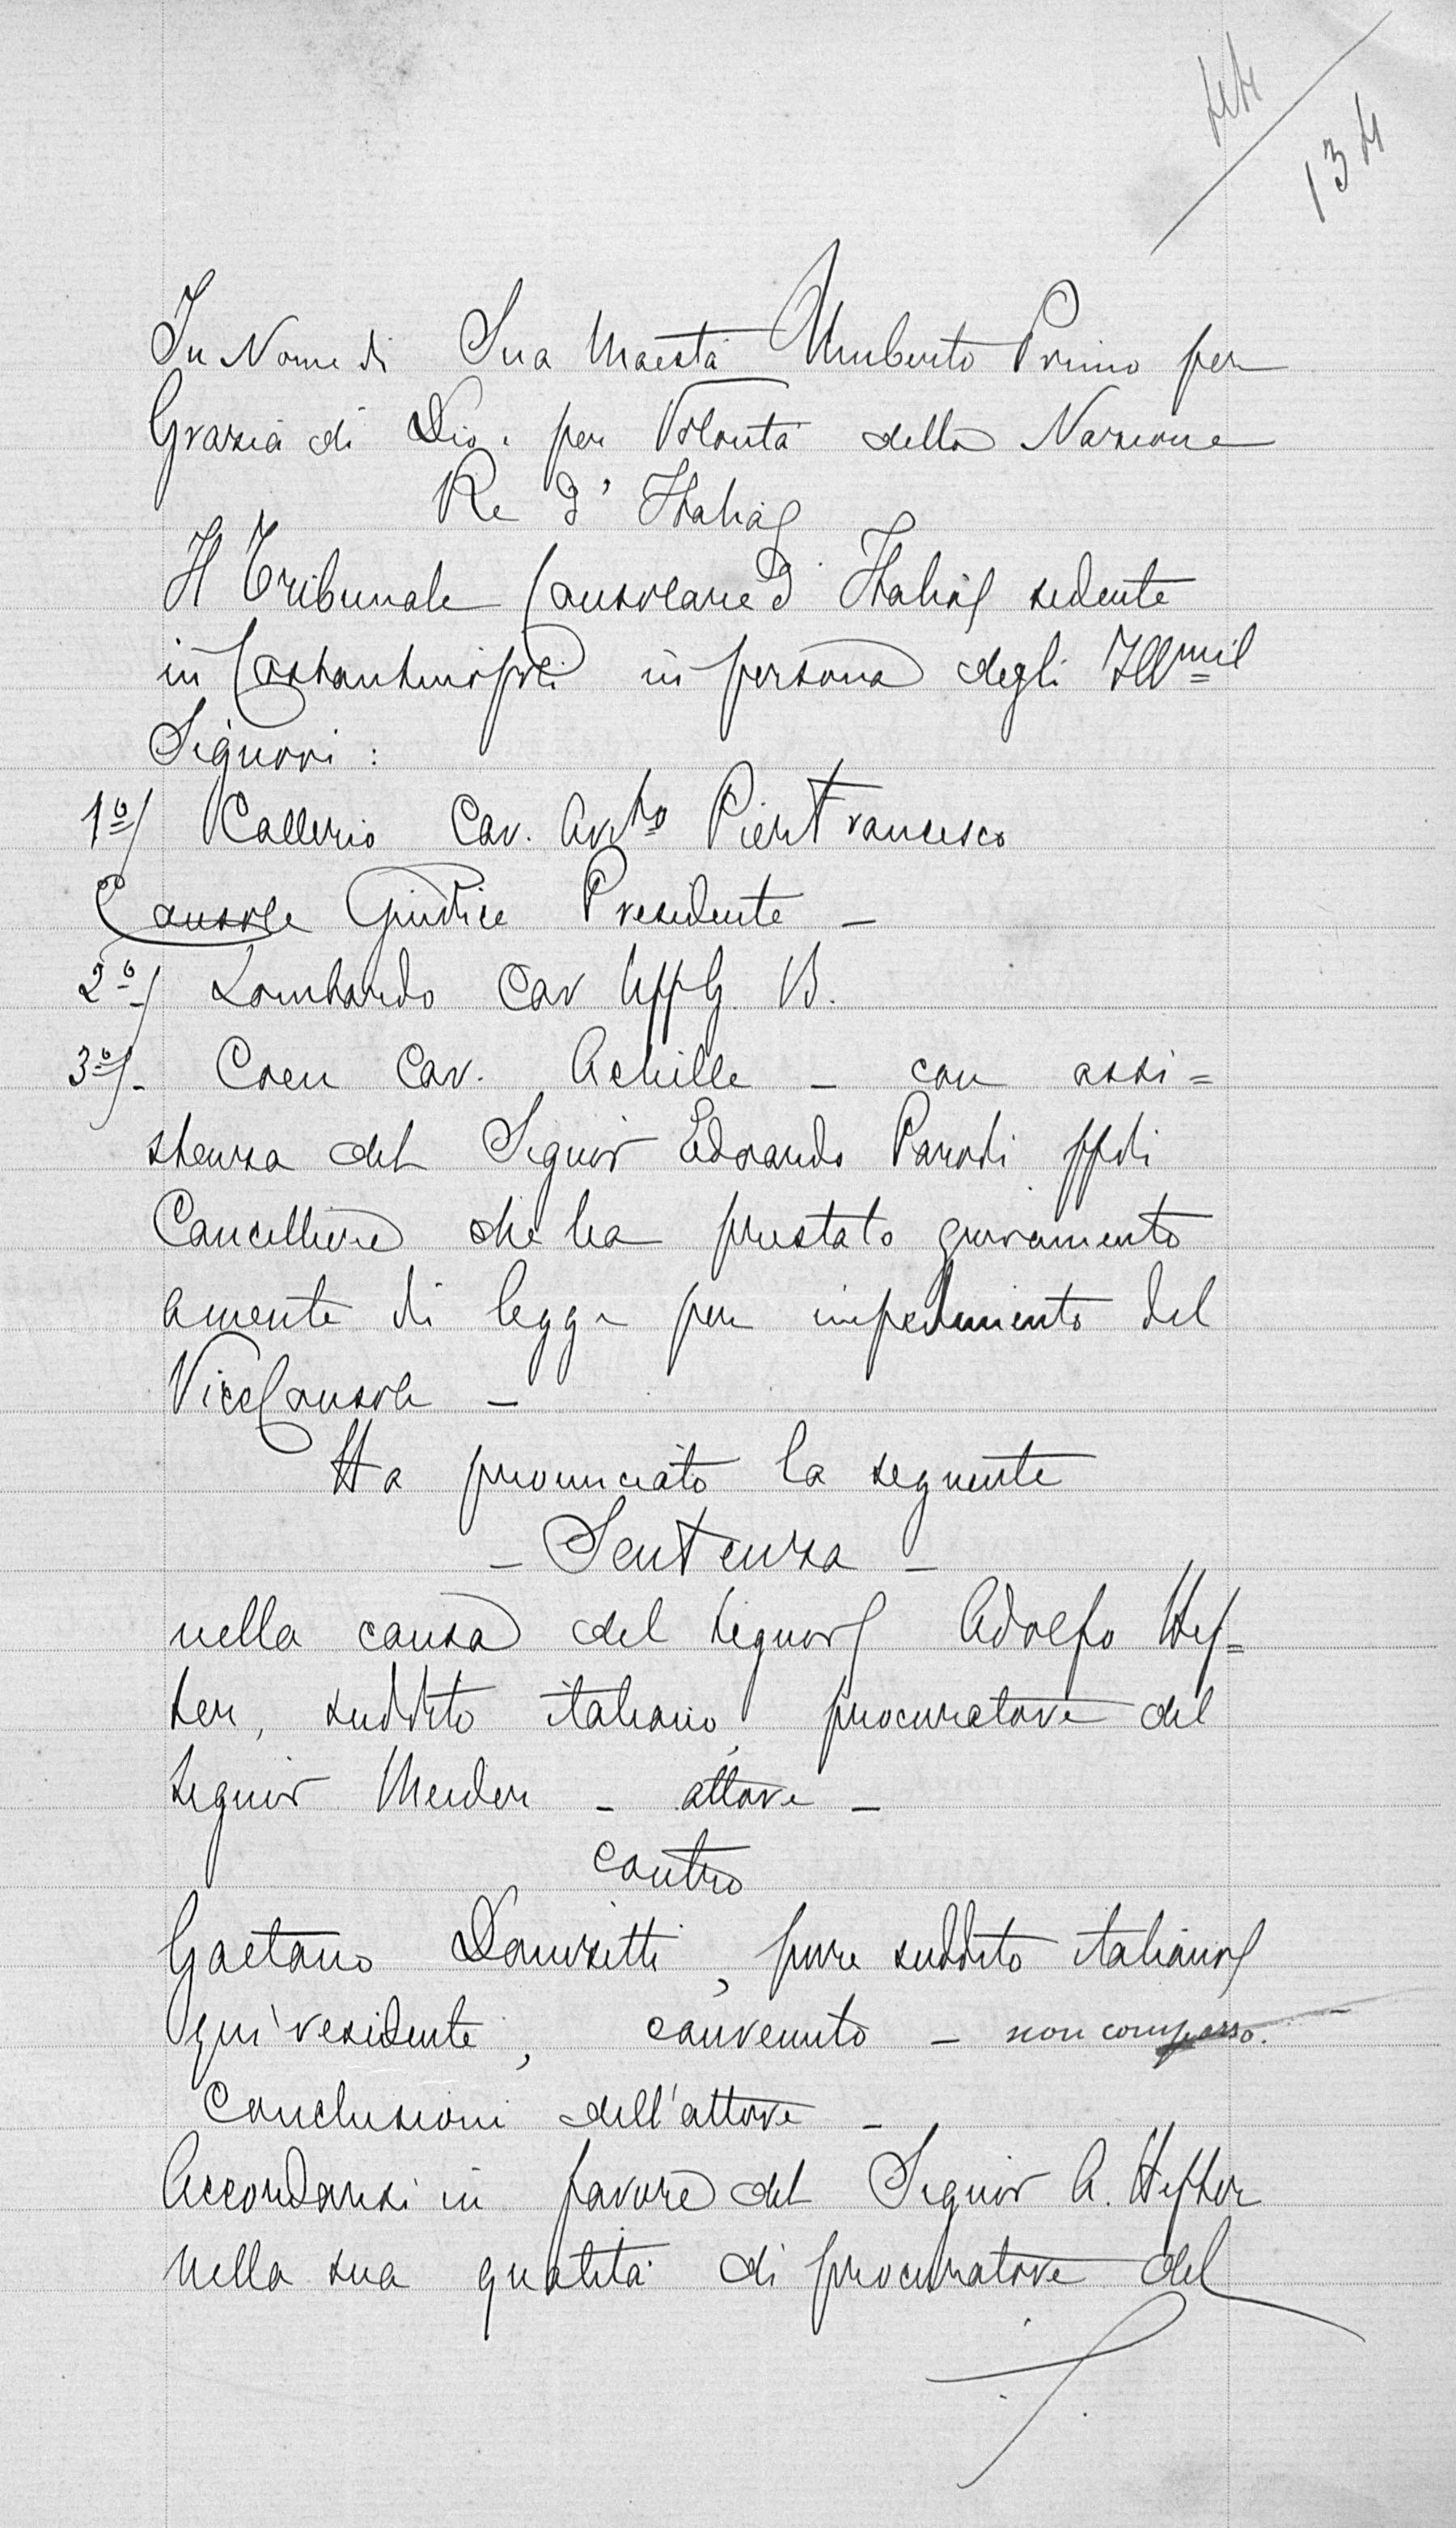 134
In Nome di Sua Maestà Umberto Primo per
Grazia di Dio e per Volontà della Nazione
Re d'Italia
Il Tribunale Consolare d'Italia sedente
in Costantinopoli in persona degli Ill.mi
Signori :
1º/ Callerio Cav. Avv.to Pier Francesco
Console Giudice Presidente _
2º/ Lombardo Cav Uff G. B.
3º/- Coen Cav. Achille _ con assi=
stenza del Signor Edoardo Parodi ff di
Cancelliere che ha prestato giuramento
a mente di legge per impedimento del
Vice Console _
Ha pronunciato la seguente
_ Sentenza _
nella causa del Signor Adolfo Hef=
ter, suddito italiano, procuratore del
Signor Meider _ attore _
contro
Gaetano Donizetti, pure suddito italiano
qui residente, convenuto _ non comparso. -
Conclusioni dell'attore _
Accordarsi in favore del Signor A. Hefter
nella sua qualità di procuratore del